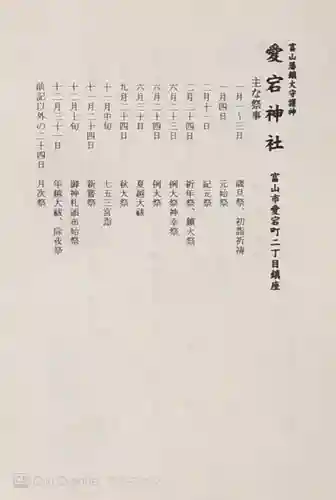 富山藩鎮火守護神
愛宕神社
富山市愛宕町二丁目鎮座
主な祭事
一月一〜三日 歳旦祭、初詣祈祷
一月四日 元始祭
二月十一日 紀元祭
二月二十四日 祈年祭、鎮火祭
六月二十三日 例大祭神幸祭
六月二十四日 例大祭
六月三十日 夏越大祓
九月二十四日 秋大祭
十一月中旬 七五三宮詣
十一月二十四日 新嘗祭
十二月上旬 御神札頒布始祭
十二月三十一日 年越大祓、除夜祭
前記以外の二十四日 月次祭